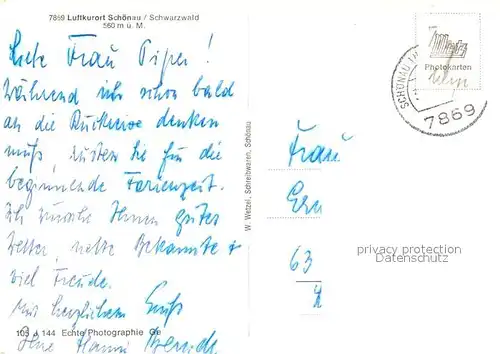 7869 Luftkurort Schönau / Schwarzwald
560 m ü. M.
Liebe Frau Piper!
Während ich schon bald
an die Rückreise denken
muß, rüsten Sie für die
beginnende Ferienzeit.
Ich wünsche Ihnen gutes
Wetter, nette Bekannte +
viel Freude.
Mit herzlichem Gruß
Ihre Hanni
103 J 144 Echte Photographie Ge
W. Wetzel, Schreibwaren, Schönau
Photokarten
SCHÖNAU
7869
Frau
63
privacy protection
Datenschutz